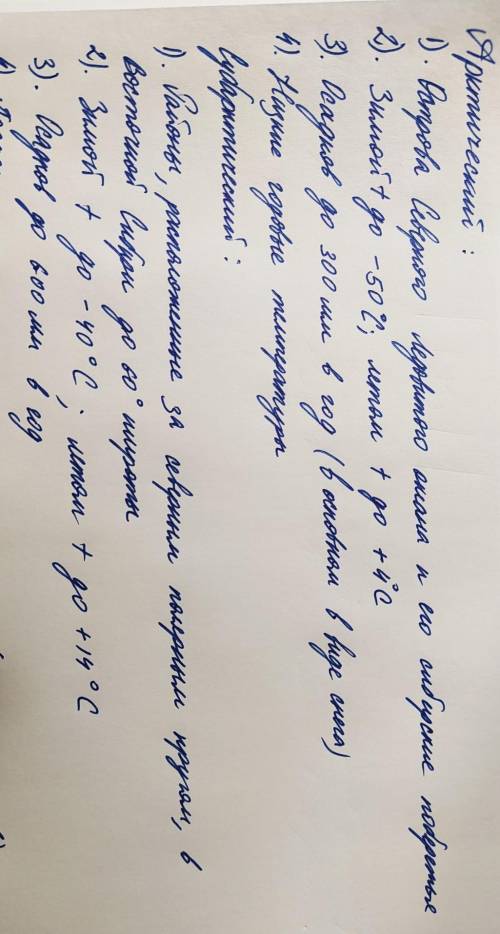 Арктический:
1). Острова Северного ледовитого океана и его сибирские побережья
2). Зимой t до -50°C; летом t до +4°C
3). Осадков до 300 мм в год (в основном в виде снега)
4). Низкие годовые температуры
Субарктический:
1). Районы, расположенные за северным полярным кругом, в
восточной Сибири до 60° широты
2). Зимой t до -40°C; летом t до +14°C
3). Осадков до 600 мм в год
4).